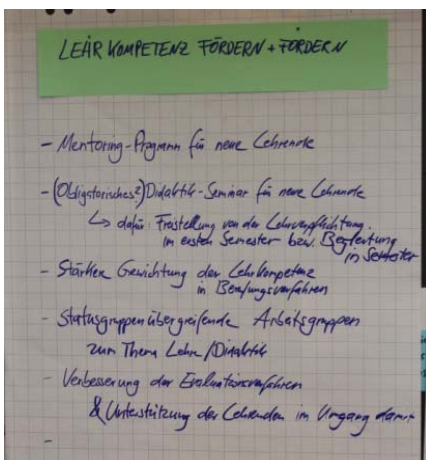 LEHRKOMPETENZ FÖRDERN + FORDERN
- Mentoring-Programm für neue Lehrende
- (Obligatorisches?) Didaktik-Seminar für neue Lehrende
↳ dafür: Freistellung von der Lehrverpflichtung
im ersten Semester bzw. Begleitung
im Semester
- Stärkere Gewichtung der Lehrkompetenz
in Berufungsverfahren
- Statusgruppenübergreifende Arbeitsgruppen
zum Thema Lehre/Didaktik
- Verbesserung der Evaluationsverfahren
& Unterstützung der Lehrenden im Umgang damit
-